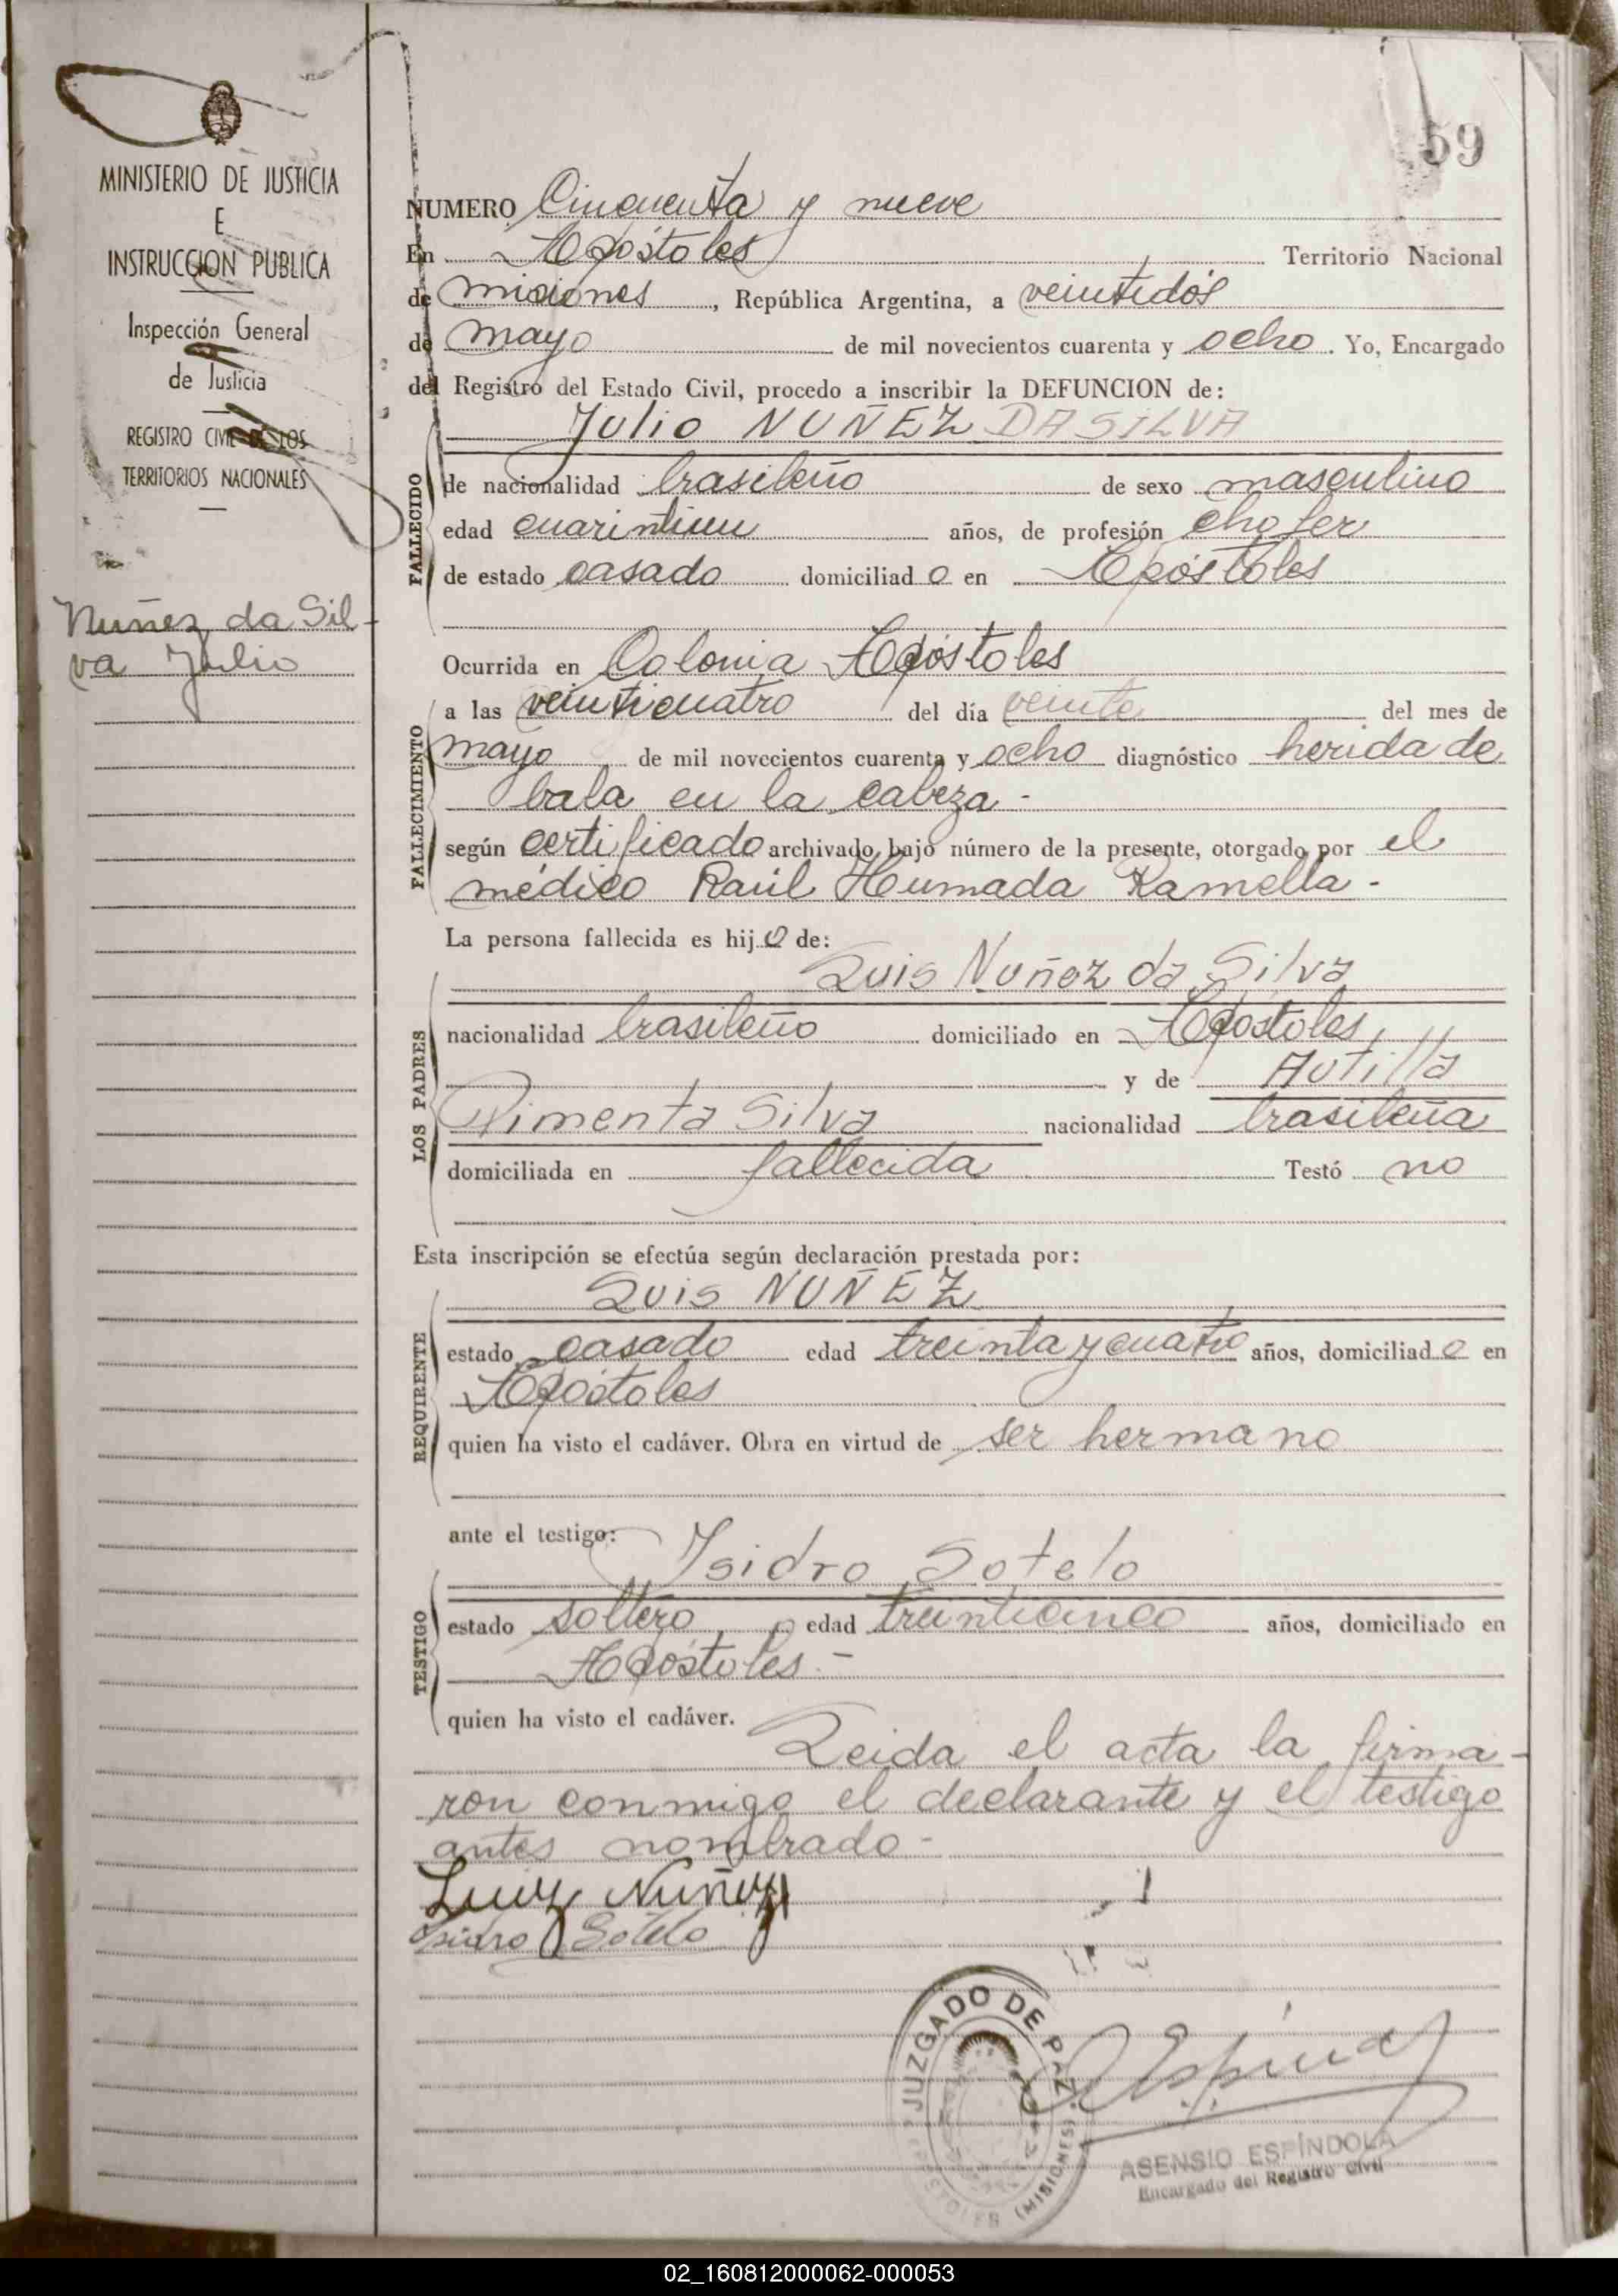 MINISTERIO DE JUSTICIA
E
INSTRUCCION PUBLICA
Inspección General
de Justicia
REGISTRO CIVIL DE LOS
TERRITORIOS NACIONALES
Nuñez da Sil-
va Julio
59
NUMERO Cincuenta y nueve
En Apóstoles Territorio Nacional
de misiones, República Argentina, a veintidós
de mayo de mil novecientos cuarenta y ocho. Yo, Encargado
del Registro del Estado Civil, procedo a inscribir la DEFUNCION de:
Julio NUÑEZ DA SILVA
FALLECIDO
de nacionalidad brasileño de sexo masculino
edad años, de profesión chofer
de estado casado domiciliado en Apóstoles
Ocurrida en Colonia Apóstoles
FALLECIMIENTO
a las veinticuatro del día veinte del mes de
mayo de mil novecientos cuarenta y ocho diagnóstico herida de
bala en la cabeza -
según certificado archivado bajo número de la presente, otorgado por el
médico Raúl Humada Ramella -
La persona fallecida es hijo de:
LOS PADRES
Luis Nuñez da Silva
nacionalidad brasileño domiciliado en Apostoles
y de
Pimenta Silva nacionalidad brasileña
domiciliada en fallecida Testó no
Esta inscripción se efectúa según declaración prestada por:
REQUIRENTE
Luis NUÑEZ
estado casado edad treinta y cuatro años, domiciliado en
Apóstoles
quien ha visto el cadáver. Obra en virtud de ser hermano
ante el testigo:
TESTIGO
Isidro Sotelo
estado soltero edad treinticinco años, domiciliado en
Apóstoles -
quien ha visto el cadáver.
Leida el acta la firma-
ron conmigo el declarante y el testigo
antes nombrado -
Luiz Nuñez
Isidro Sotelo
JUZGADO DE PAZ
APOSTOLES (MISIONES)
ASENSIO ESPÍNDOLA
Encargado del Registro Civil
02_160812000062-000053